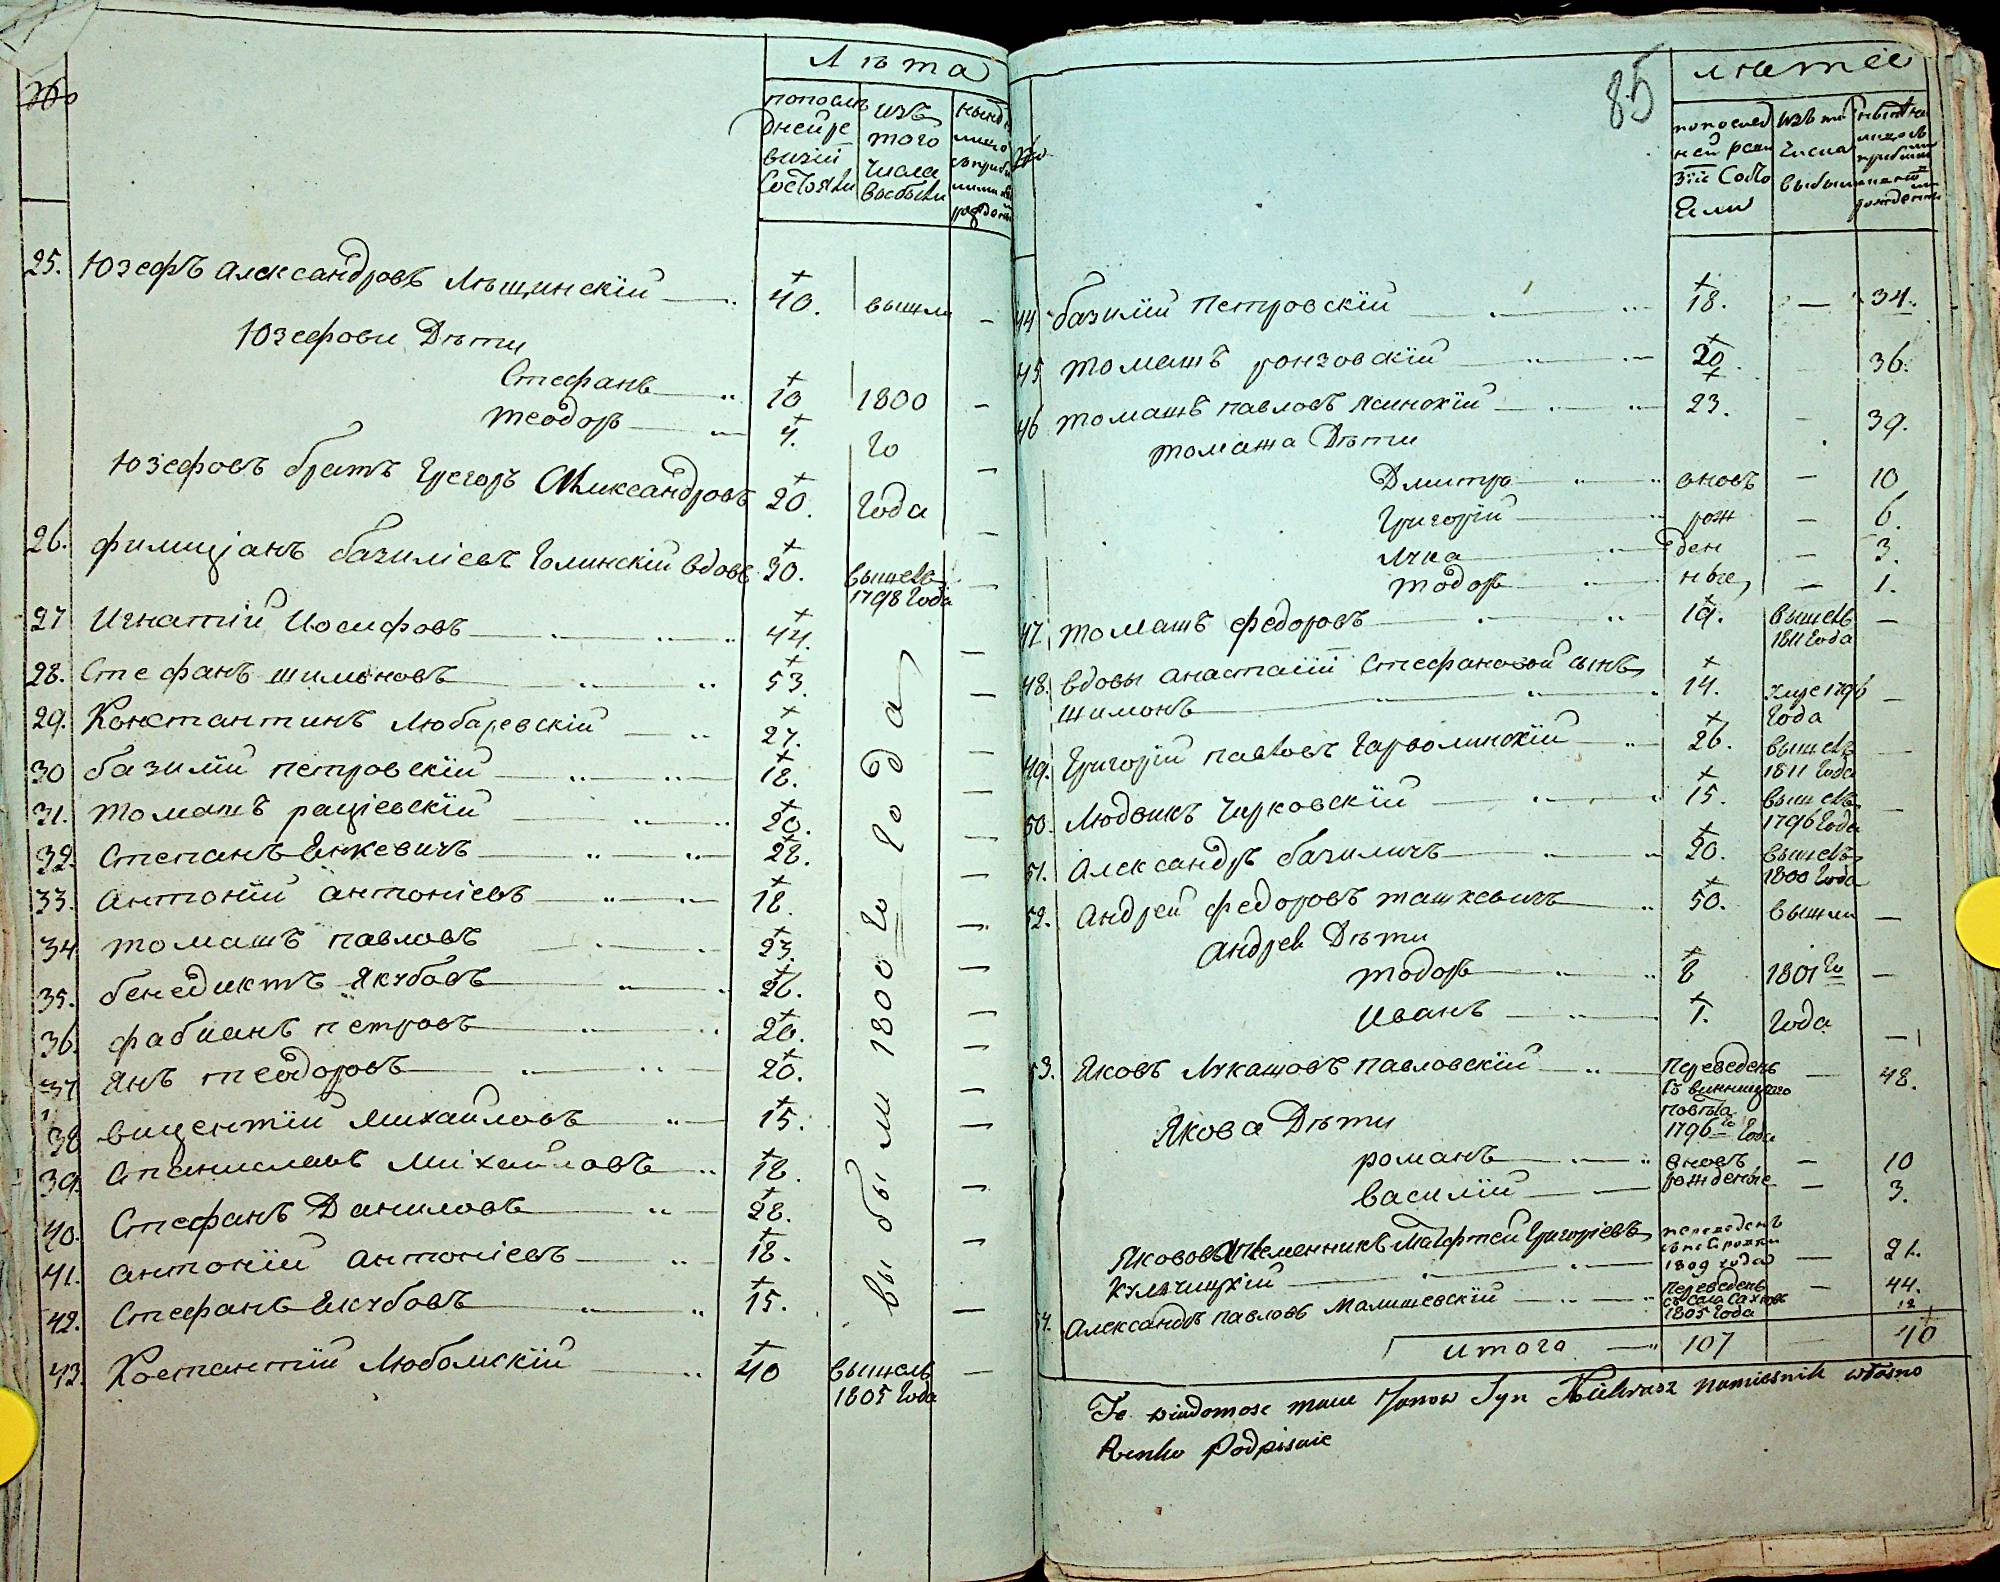 №
Лѣта
попослѣ
днейре
визіи
состояли
изъ
того
числа
выбыли
нынѣ
25. Юзефъ Александровъ Лѣщинскій 40. вышли —
Юзефови Дѣти
Стефанъ 10 1800 —
теодоръ 4. го
Юзефовъ братъ Грегоръ Александровъ 20. года —
26. филиціанъ базиліевъ Голинскій вдовъ 30. вышелъ 1798 года —
27 Игнатій Иосифовъ 44. —
28. Стефанъ шимоновъ 53. —
29. Константинъ Любаревскій 27. —
30 базилій петровскій 18. —
31. томашъ раціевскій 20. —
32. Степанъ Янкевичъ 28. —
33. антоній антоніевъ 18. —
34 томашъ павловъ 23. —
35. бенедиктъ Якубовъ 26. —
36. фабианъ петровъ 20. —
37 янъ теодоровъ 20. —
38 вицентій михайловъ 15. —
39. станиславъ михайловъ 18. —
40. Стефанъ Даниловъ 28. —
41. антоній антоніевъ 18. —
42. Стефанъ Якубовъ 15. —
выбыли 1800 го года
43. Костантій Любомскій 40 вышелъ —
1805 года
85
№
лѣтье
попослед
ней реви
зіи Состо
яли
изъ то
числа
выбыли
44 базилій Петровскій 18. — 34.
45 томашъ ронзовскій 20. — 36.
46 томашъ павловъ Ясинскій 23. — 39.
томаша Дѣти
Дмитро вновь — 10
Григорій рож — 6.
Лука ден — 3.
тодоръ ные, — 1.
47 томашъ федоровъ 19. вышелъ —
1811 года
48. вдовы анастазіи Стефановой сынъ
шимонъ 14. 1796 —
года
49. Григорій павловъ Гарволинскій 26. вышелъ —
1811 года
50. Людвикъ Чирковскій 15. вышелъ —
1796 года
51. Александръ базиличъ 20. вышелъ
1800 года
52. андрей федоровъ ташкевичъ 50. вышли —
андрея Дѣти
тодоръ 8 1801 го —
Иванъ 1. года —
53. Яковъ Лукашовъ павловскій переведенъ — 48.
съ винницкого
повѣта
1796 го года
Якова Дѣти
романъ вновь — 10
василій рожденые — 3.
Якововъ племенникъ Матфтей Григоріевъ
Кульчицкій 1809 года — 21.
54. Александръ павловъ Малишевскій переведенъ — 44.
съ села
1805 года
итого — 107 — 40
Te wiadomosc maiu Janow Syn namiesnik własno
Renko Podpisuie